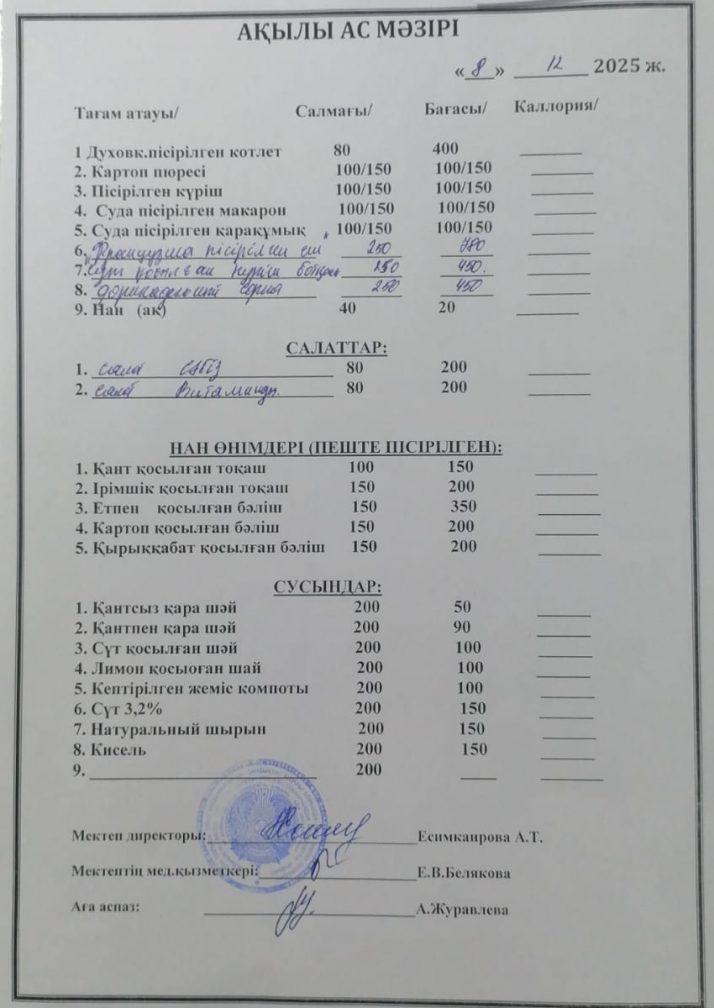 АҚЫЛЫ АС МӘЗІРІ
«8» 12 2025 ж.
Тағам атауы/ Салмағы/ Бағасы/ Каллория/
1 Духовк.пісірілген котлет 80 400
2. Картоп пюресі 100/150 100/150
3. Пісірілген күріш 100/150 100/150
4. Суда пісірілген макарон 100/150 100/150
5. Суда пісірілген қарақұмық 100/150 100/150
6. Французша пісірілген ет 250 780
7. қосылған күріш ботқасы 250 450.
8. 250 450
9. Нан (ақ) 40 20
САЛАТТАР:
1. салат сәбіз 80 200
2. салат Витаминді. 80 200
НАН ӨНІМДЕРІ (ПЕШТЕ ПІСІРІЛГЕН):
1. Қант қосылған тоқаш 100 150
2. Ірімшік қосылған тоқаш 150 200
3. Етпен қосылған бәліш 150 350
4. Картоп қосылған бәліш 150 200
5. Қырыққабат қосылған бәліш 150 200
СУСЫНДАР:
1. Қантсыз қара шәй 200 50
2. Қантпен қара шәй 200 90
3. Сүт қосылған шәй 200 100
4. Лимон қосыоған шай 200 100
5. Кептірілген жеміс компоты 200 100
6. Сүт 3,2% 200 150
7. Натуральный шырын 200 150
8. Кисель 200 150
9. 200
Мектеп директоры: Есимкаирова А.Т.
Мектептің мед.қызметкері: Е.В.Белякова
Аға аспаз: А.Журавлева